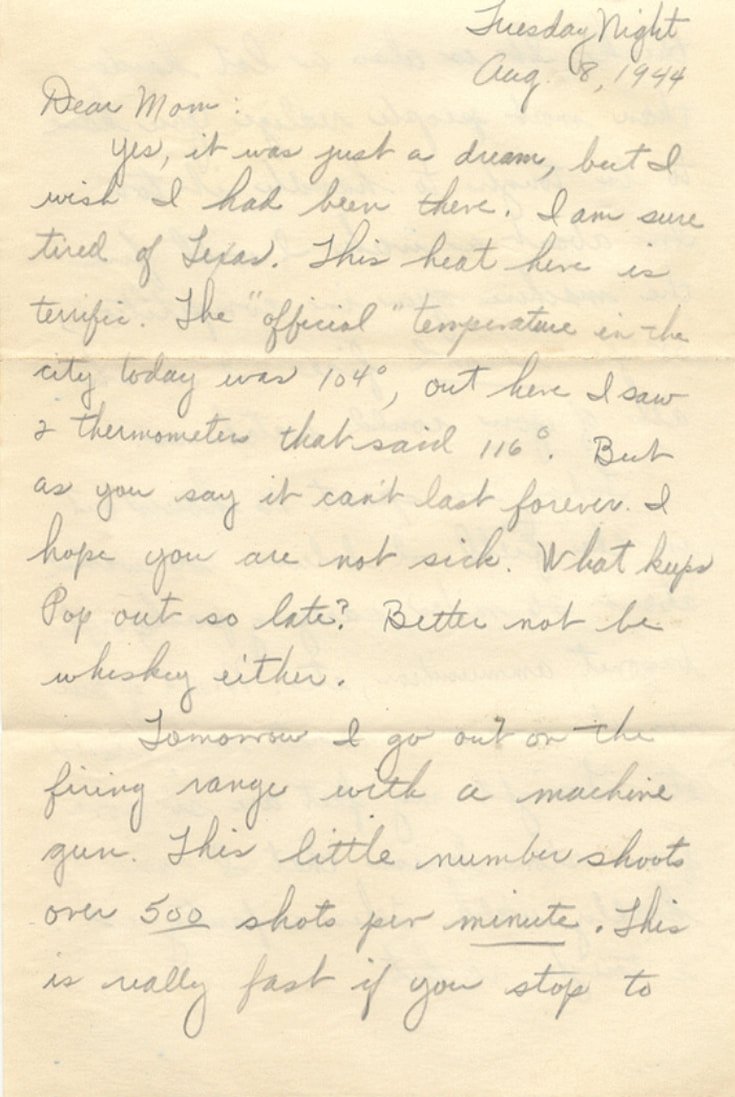 Tuesday Night
Aug. 8, 1944
Dear Mom:
Yes, it was just a dream, but I
wish I had been there. I am sure
tired of Texas. This heat here is
terrific. The "official" temperature in the
city today was 104°, out here I saw
2 thermometers that said 116°. But
as you say it can't last forever. I
hope you are not sick. What keeps
Pop out so late? Better not be
whiskey either.
Tomorrow I go out on the
firing range with a machine
gun. This little number shoots
over 500 shots per minute. This
is really fast if you stop to